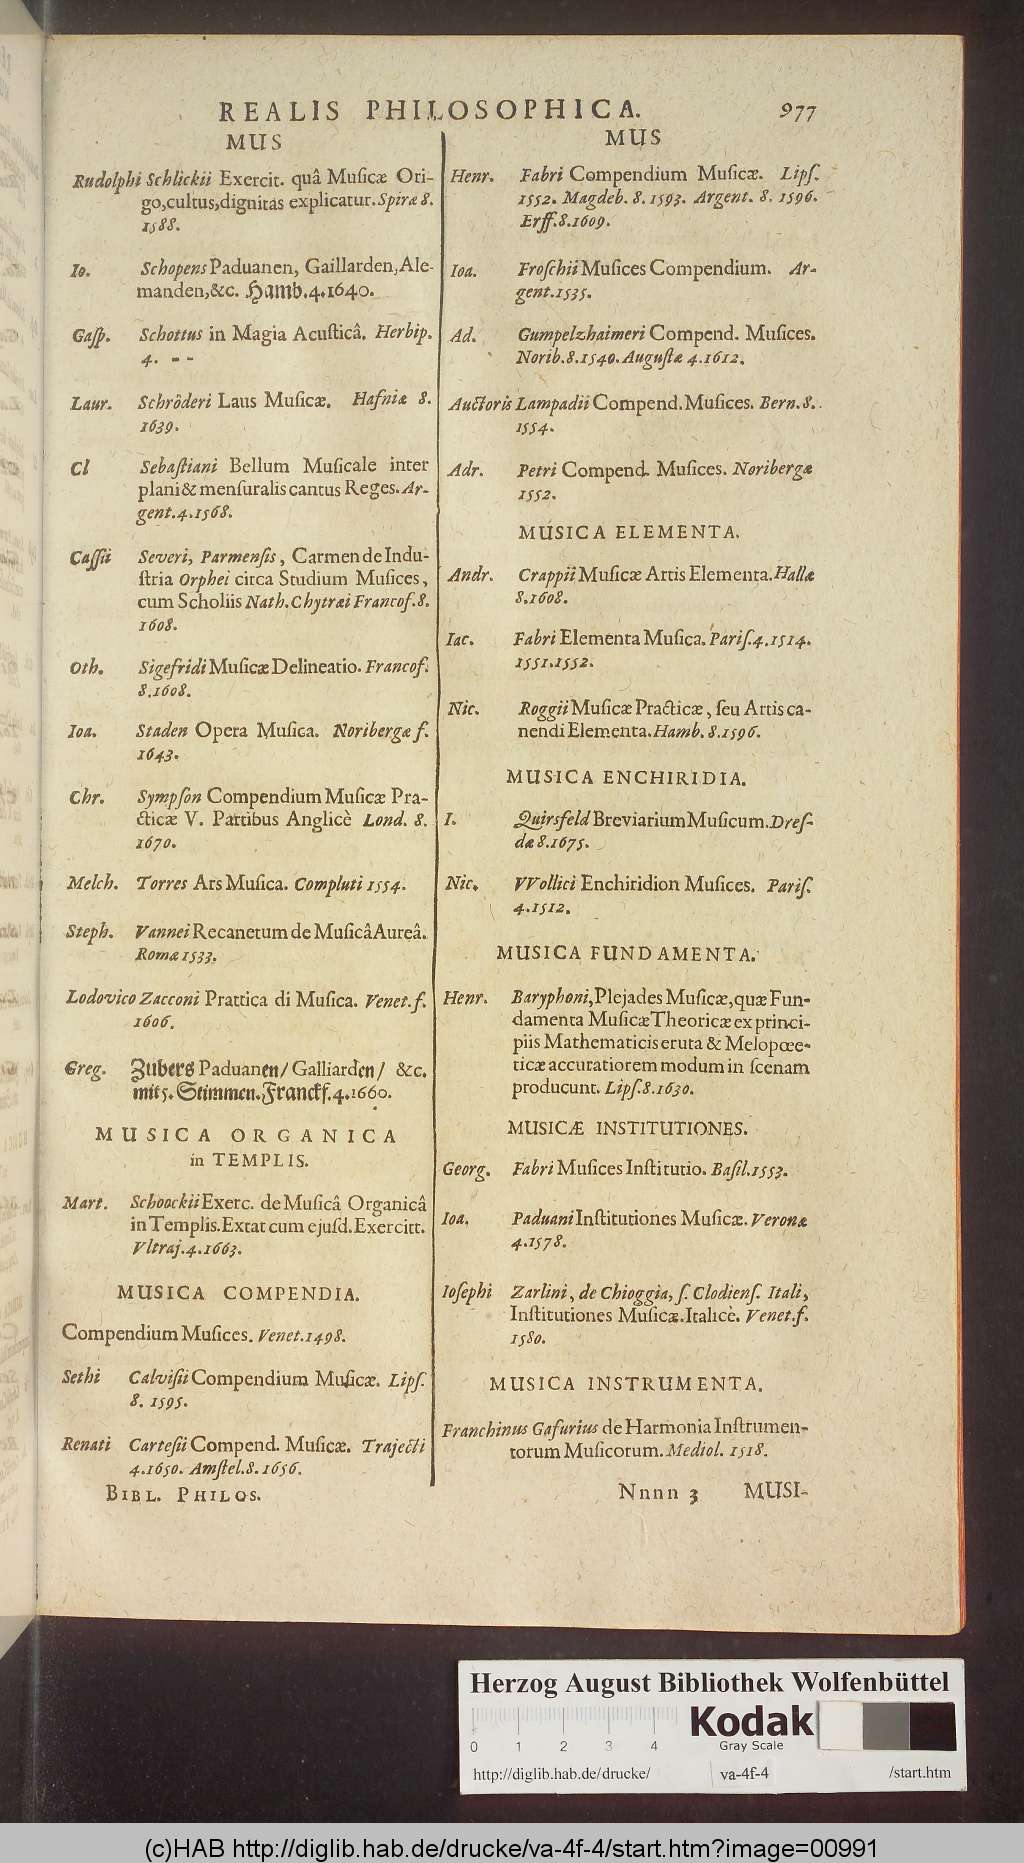 REALIS PHILOSOPHICA. 977
MUS
Rudolphi Schlickii Exercit. quâ Musicæ Ori-
go,cultus,dignitas explicatur. Spiræ 8.
1588.
Io. Schopens Paduanen, Gaillarden, Ale-
manden,&c. Hamb.4.1640.
Gasp. Schottus in Magia Acusticâ. Herbip.
4. - -
Laur. Schrôderi Laus Musicæ. Hafniæ 8.
1639.
Cl Sebastiani Bellum Musicale inter
plani & mensuralis cantus Reges. Ar-
gent.4.1568.
Cassii Severi, Parmensis, Carmen de Indu-
stria Orphei circa Studium Musices,
cum Scholiis Nath. Chytræi Francof.8.
1608.
Oth. Sigefridi Musicæ Delineatio. Francof.
8.1608.
Ioa. Staden Opera Musica. Noribergæ f.
1643.
Chr. Sympson Compendium Musicæ Pra-
cticæ V. Partibus Anglicè Lond. 8.
1670.
Melch. Torres Ars Musica. Compluti 1554.
Steph. Vannei Recanetum de Musicâ Aureâ.
Romæ 1533.
Lodovico Zacconi Prattica di Musica. Venet.f.
1606.
Greg. Zubers Paduanen/ Galliarden/ &c.
mit 5. Stimmen. Franckf.4.1660.
MUSICA ORGANICA
in TEMPLIS.
Mart. Schoockii Exerc. de Musicâ Organicâ
in Templis. Extat cum ejusd. Exercitt.
Vltraj.4.1663.
MUSICA COMPENDIA.
Compendium Musices. Venet.1498.
Sethi Calvisii Compendium Musicæ. Lips.
8. 1595.
Renati Cartesii Compend. Musicæ. Trajecti
4.1650. Amstel.8.1656.
BIBL. PHILOS.
MUS
Henr. Fabri Compendium Musicæ. Lips.
1552. Magdeb. 8. 1593. Argent. 8. 1596.
Erff.8.1609.
Ioa. Froschii Musices Compendium. Ar-
gent.1535.
Ad. Gumpelzhaimeri Compend. Musices.
Norib.8.1540. Augustæ 4.1612.
Auctoris Lampadii Compend. Musices. Bern.8.
1554.
Adr. Petri Compend. Musices. Noribergæ
1552.
MUSICA ELEMENTA.
Andr. Crappii Musicæ Artis Elementa. Hallæ
8.1608.
Iac. Fabri Elementa Musica. Paris.4.1514.
1551.1552.
Nic. Roggii Musicæ Practicæ, seu Artis ca-
nendi Elementa. Hamb. 8.1596.
MUSICA ENCHIRIDIA.
I. Quirsfeld Breviarium Musicum. Dres-
dæ 8.1675.
Nic. VVollici Enchiridion Musices. Paris.
4.1512.
MUSICA FUNDAMENTA.
Henr. Baryphoni, Plejades Musicæ, quæ Fun-
damenta Musicæ Theoricæ ex princi-
piis Mathematicis eruta & Melopœe-
ticæ accuratiorem modum in scenam
producunt. Lips.8.1630.
MUSICÆ INSTITUTIONES.
Georg. Fabri Musices Institutio. Basil.1553.
Ioa. Paduani Institutiones Musicæ. Veronæ
4.1578.
Iosephi Zarlini, de Chioggia, s. Clodiens. Itali,
Institutiones Musicæ. Italicè. Venet.f.
1580.
MUSICA INSTRUMENTA.
Franchinus Gafurius de Harmonia Instrumen-
torum Musicorum. Mediol. 1518.
Nnnn 3 MUSI-
Herzog August Bibliothek Wolfenbüttel
0 1 2 3 4
Kodak
Gray Scale
http://diglib.hab.de/drucke/ va-4f-4 /start.htm
(c)HAB http://diglib.hab.de/drucke/va-4f-4/start.htm?image=00991